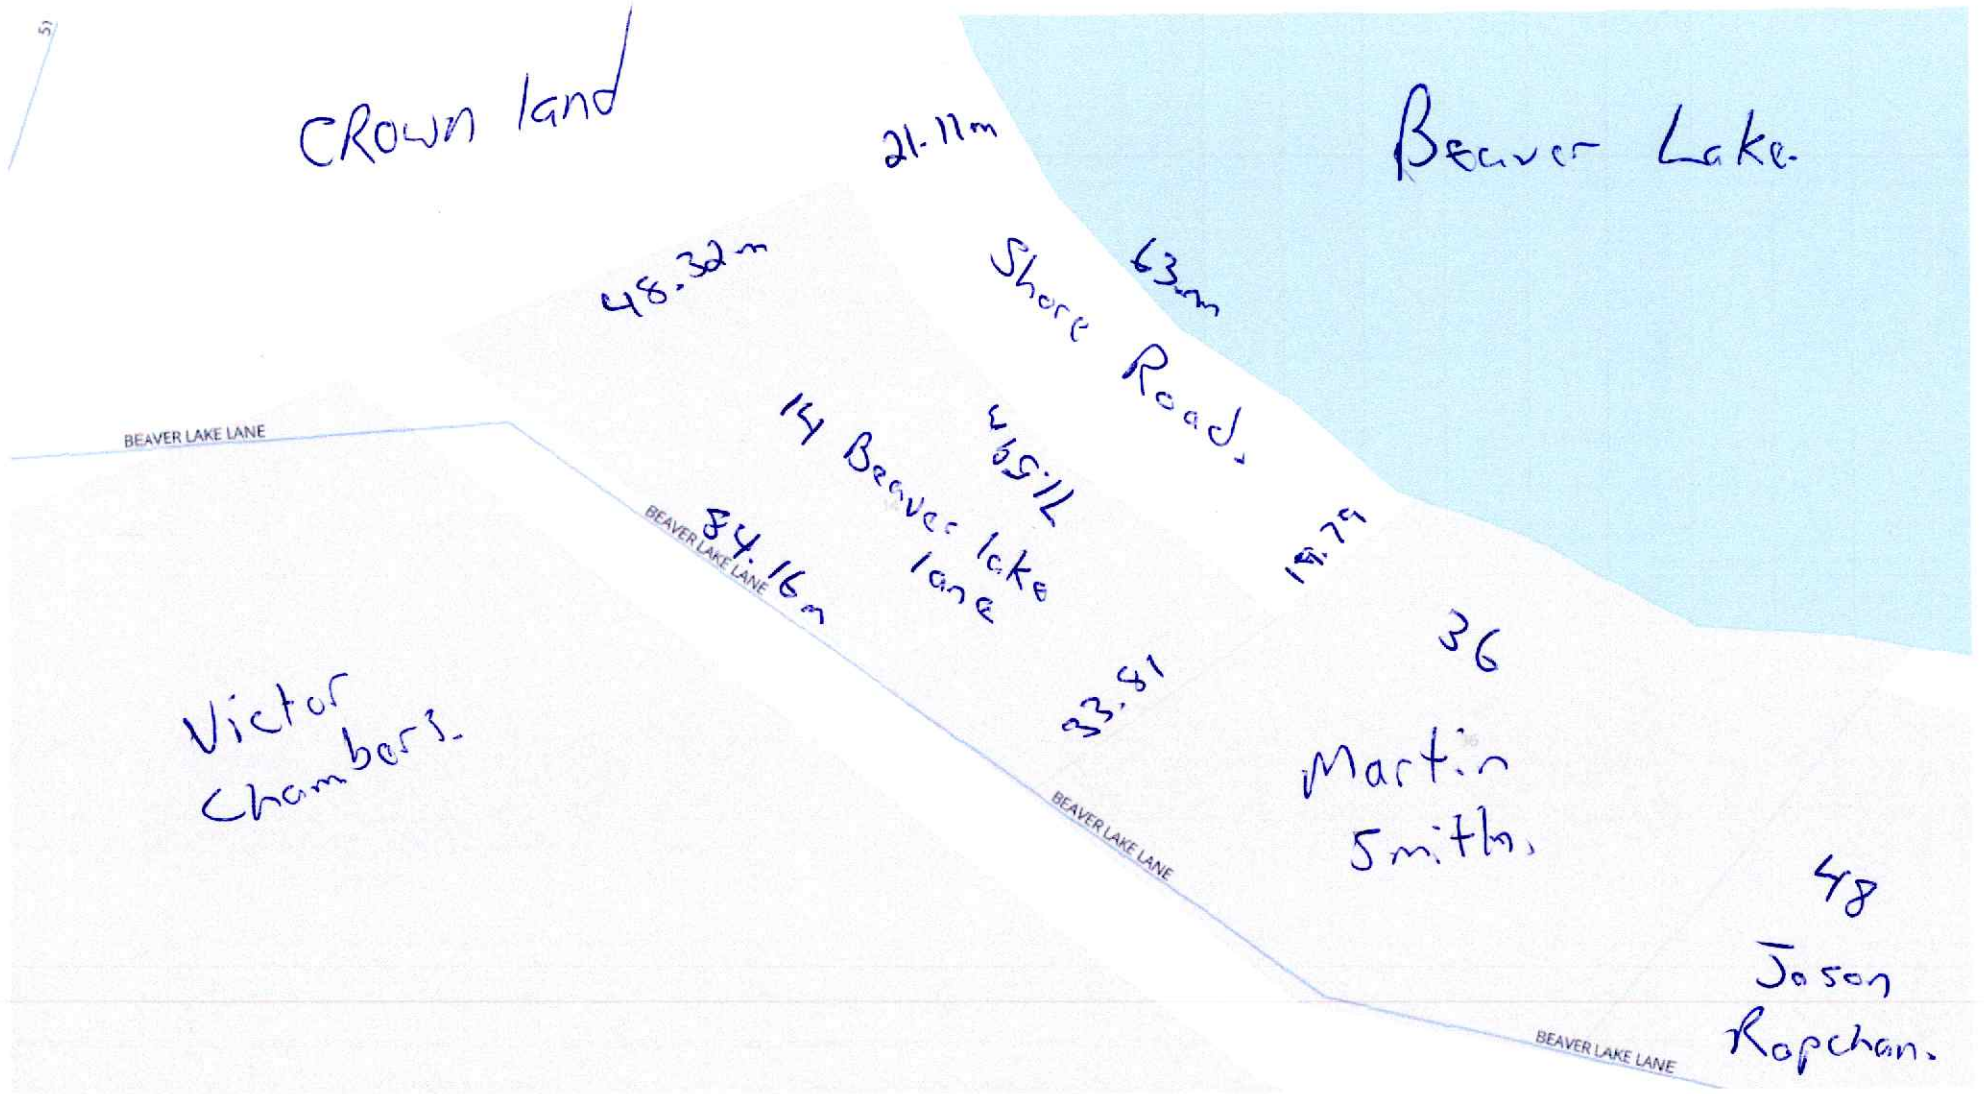 51
CRown land
21.11m
Beaver Lake.
48.32m
Shore Road.
63m
BEAVER LAKE LANE
14 Beaver lake
lane
71.59m
BEAVER LAKE LANE
84.16m
19.79
33.81
36
36
Victor
Chambers.
Martin
Smith.
BEAVER LAKE LANE
48
Jason
Rapchan.
BEAVER LAKE LANE